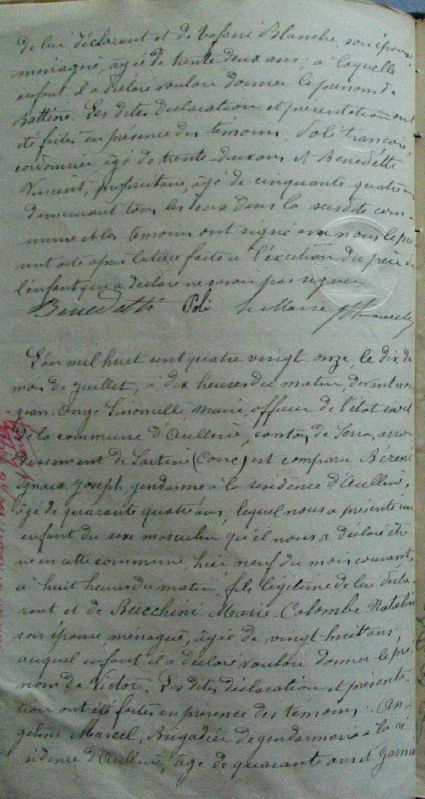 de lui déclarant et de Vassari Blanche, son épouse
ménagère, agée de trente deux ans; à laquelle
enfant il a déclaré vouloir donner le prénom de
Battine. Les dites déclaration et présentation ont
été faites en présence des témoins: Poli François,
cordonnier agé de trente-deux ans et Benedetti
Vincent, propriétaire, âgé de cinquante quatre ans
demeurant tous les deux dans la susdite com-
mune et les témoins ont signé avec nous le pré
sent acte après lecture faite à l'exception du père de
l'enfant qui a déclaré ne savoir pas signer
Benedetti Poli Le Maire
L'an mil huit cent quatre vingt onze le dix du
mois de Juillet, à dix heures du matin, devant nous
Jean-Ange Simonelli Maire, officier de l'état civil
de la commune d'Aullène, canton de Serra, arron
dissement de Sartène (Corse) est comparu
Joseph, gendarme à la résidence d'Aullène,
âgé de quarante quatre ans, lequel nous a présenté un
enfant du sexe masculin qu'il nous a déclaré être
né en cette commune, hier neuf du mois courant,
à huit heures du matin, fils légitime de lui décla
rant et de Bucchini Marie-Colombe Natalin
son épouse, ménagère, agée de vingt huit ans,
auquel enfant il a déclaré vouloir donner le pré
nom de Victor. Les dites déclaration et présenta-
tion ont été faites en présence des témoins: An-
geleni Marcel, Brigadier de gendarmerie à la ré
sidence d'Aullène, âgé de quarante ans et